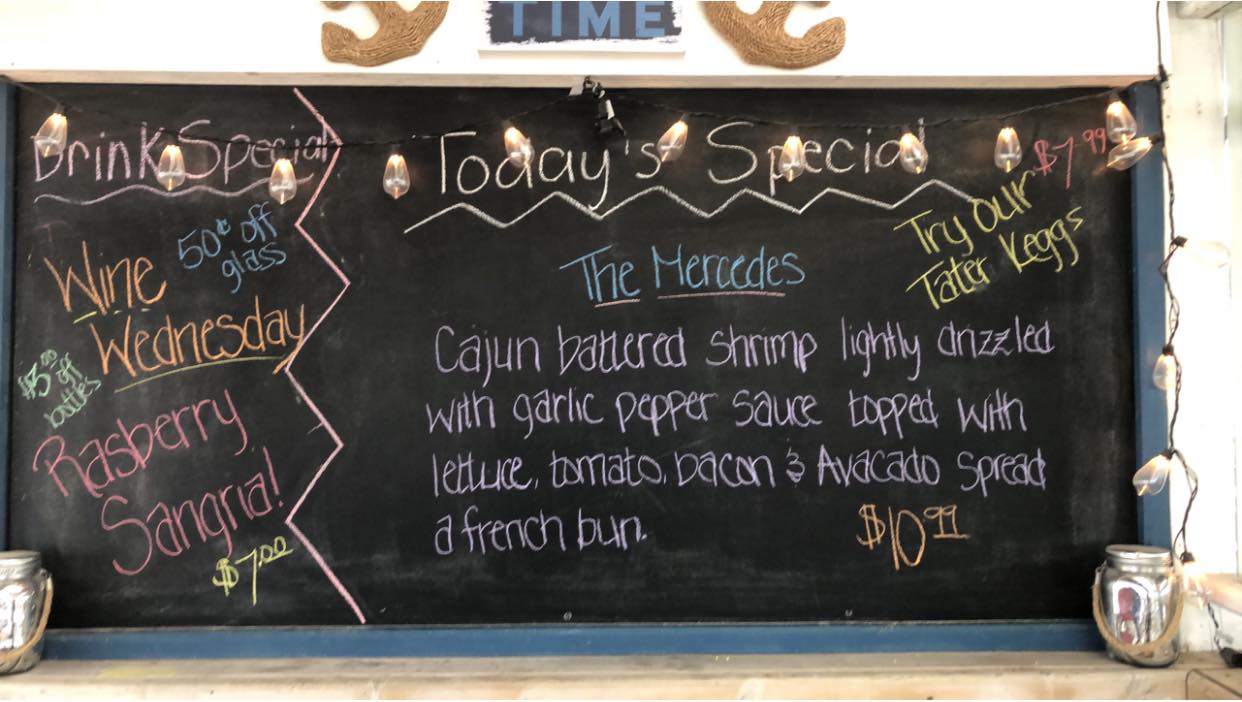 TIME
Drink Special
Wine
50¢ off
glass
Wednesday
$5.00 off
bottles
Rasberry
Sangria!
$7.00
Today's Special
$7.99
Try our
Tater Keggs
The Mercedes
Cajun battered shrimp lightly drizzled
with garlic pepper sauce topped with
lettuce, tomato, bacon & Avacado spread
a french bun.
$10.99